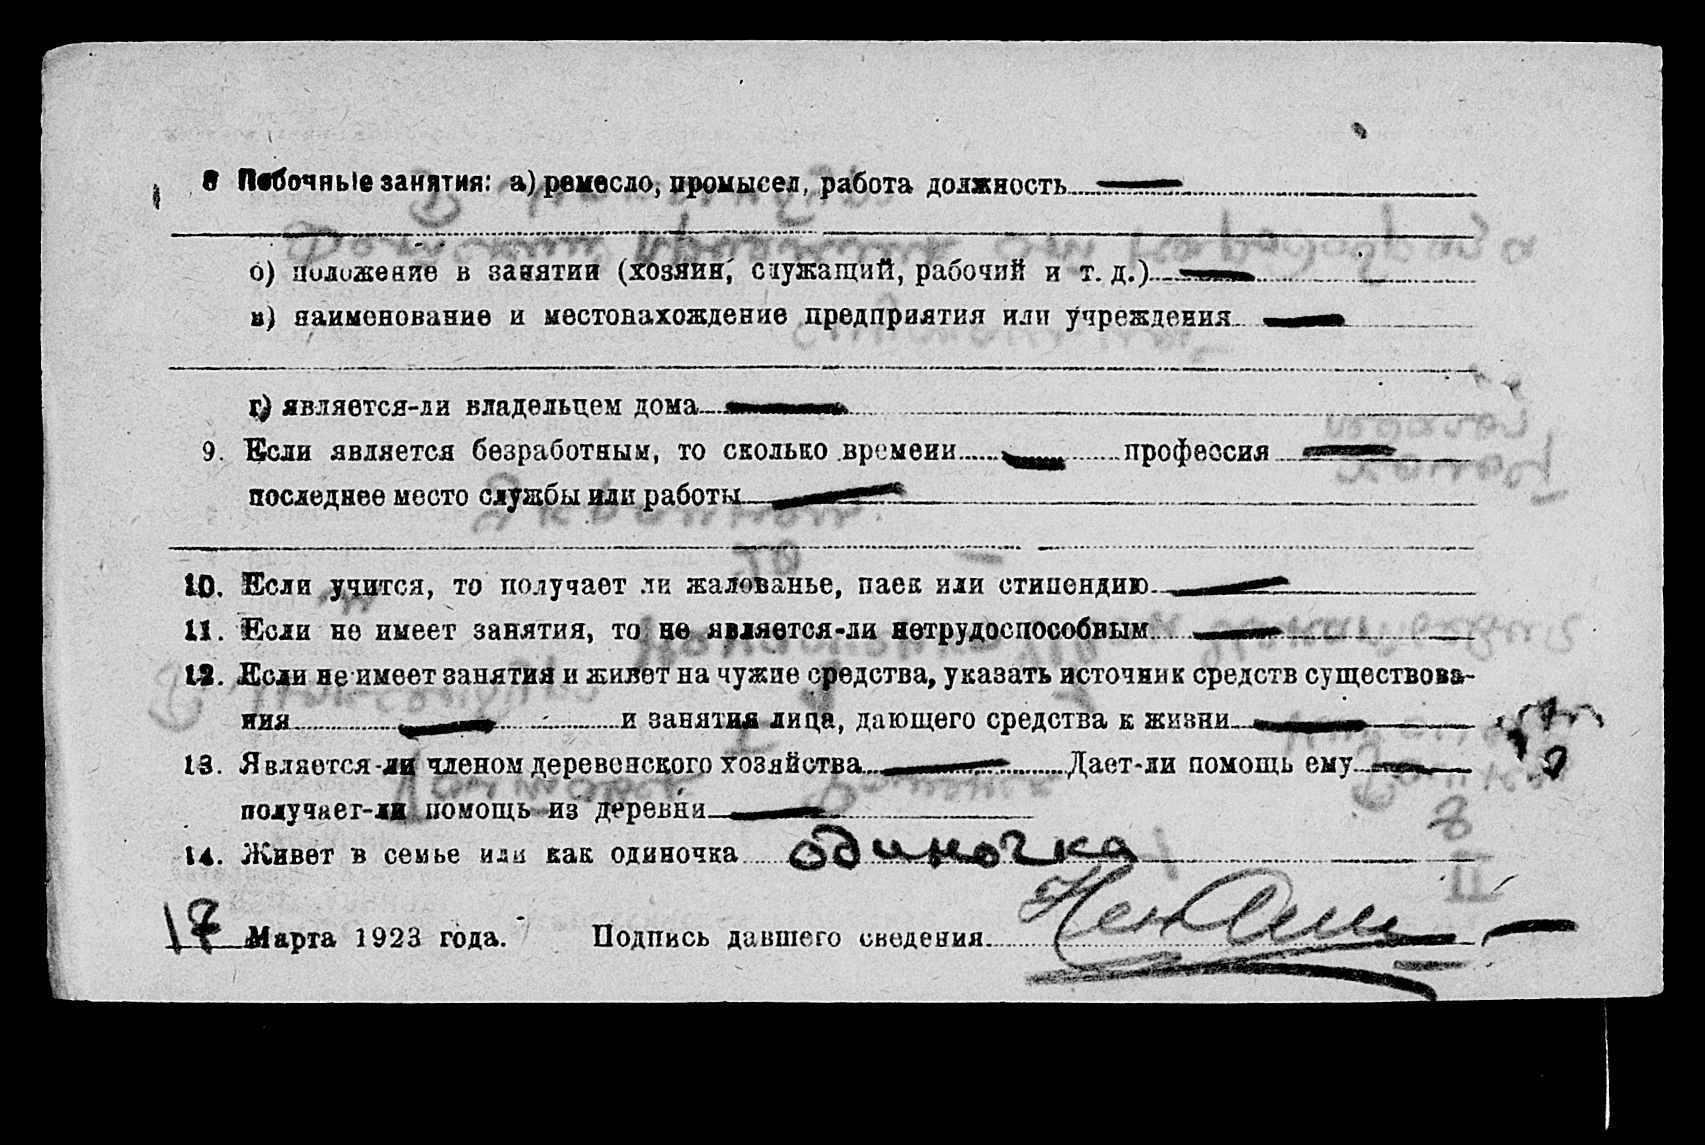 8 Побочные занятия: а) ремесло, промысел, работа должность —
б) положение в занятии (хозяин, служащий, рабочий и т. д.) —
в) наименование и местонахождение предприятия или учреждения —
г) является-ли владельцем дома —
9. Если является безработным, то сколько времени — профессия —
последнее место службы или работы —
10. Если учится, то получает ли жалованье, паек или стипендию —
11. Если не имеет занятия, то не является-ли нетрудоспособным —
12. Если не имеет занятия и живет на чужие средства, указать источник средств существова-
ния — и занятия лица, дающего средства к жизни —
13. Является-ли членом деревенского хозяйства — Дает-ли помощь ему —
получает-ли помощь из деревни —
14. Живет в семье или как одиночка одиночка
17 Марта 1923 года. Подпись давшего сведения